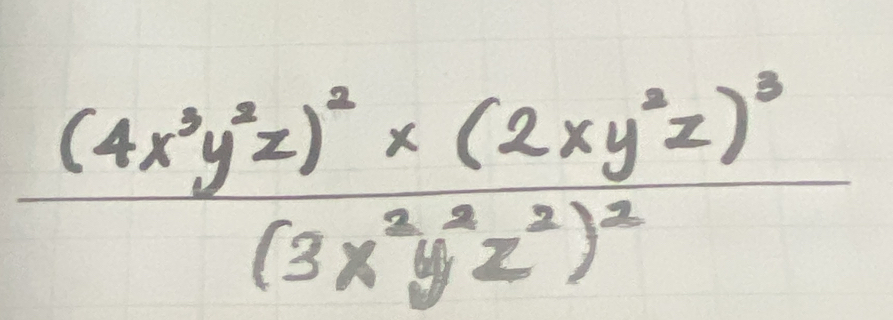 (4x³y²z)² × (2xy²z)³
(3x²y²z²)²